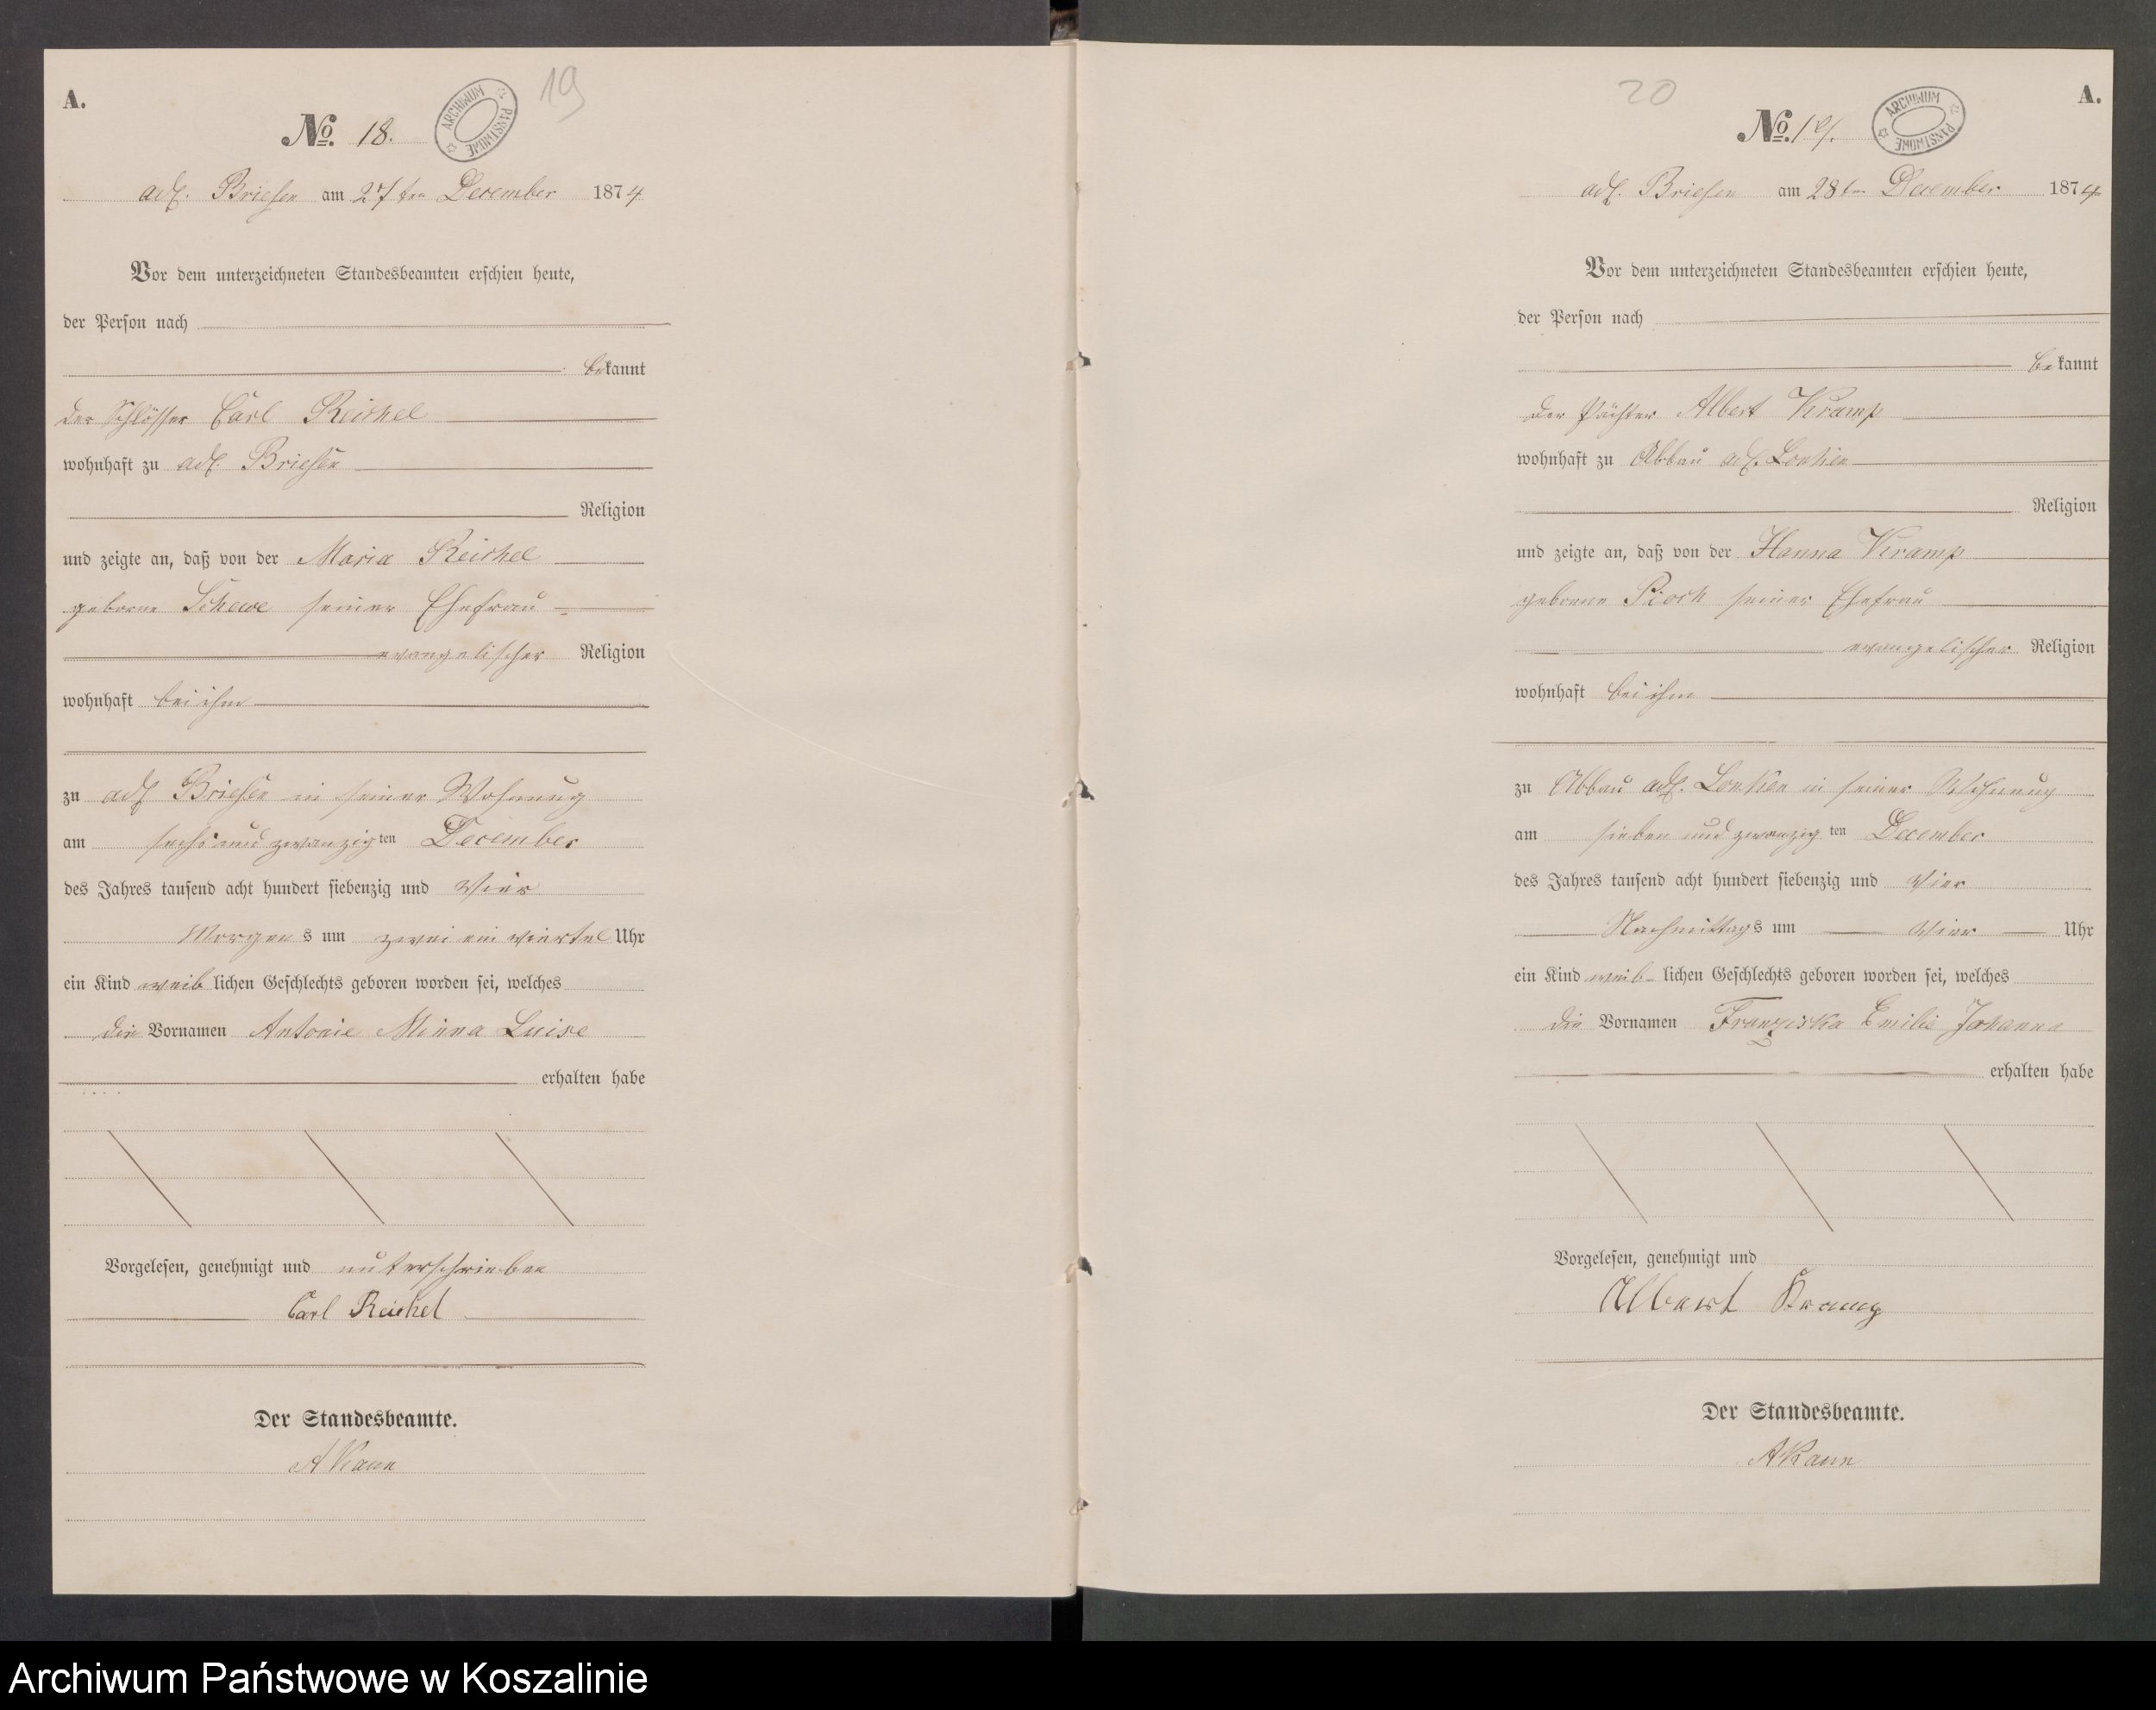 A.
19
No. 18.
ARCHIWUM PAŃSTWOWE
adl. Briesen am 27ten December 1874
Vor dem unterzeichneten Standesbeamten erschien heute,
der Person nach
bekannt
der Schlosser Carl Reichel
wohnhaft zu adl. Briesen
Religion
und zeigte an, daß von der Maria Reichel
geborne Schewe seiner Ehefrau
evangelischer Religion
wohnhaft bei ihm
zu adl Briesen in seiner Wohnung
am sechs und zwanzigten December
des Jahres tausend acht hundert siebenzig und Vier
Morgens um zwei ein viertel Uhr
ein Kind weiblichen Geschlechts geboren worden sei, welches
die Vornamen Antonie Minna Luise
erhalten habe
Vorgelesen, genehmigt und unterschrieben
Carl Reichel
Der Standesbeamte.
20
A.
No. 19.
ARCHIWUM PAŃSTWOWE
adl. Briesen am 28ten December 1874
Vor dem unterzeichneten Standesbeamten erschien heute,
der Person nach
bekannt
der Pächter Albert Kramp
wohnhaft zu Abbau adl. Lonken
Religion
und zeigte an, daß von der Hanna Kramp
geborne Pioch seiner Ehefrau
evangelischer Religion
wohnhaft bei ihm
zu Abbau adl. Lonken in seiner Wohnung
am sieben und zwanzigten December
des Jahres tausend acht hundert siebenzig und Vier
Nachmittags um Vier Uhr
ein Kind weiblichen Geschlechts geboren worden sei, welches
die Vornamen Franziska Emilie Johanna
erhalten habe
Vorgelesen, genehmigt und
Albert Kramp
Der Standesbeamte.
Archiwum Państwowe w Koszalinie